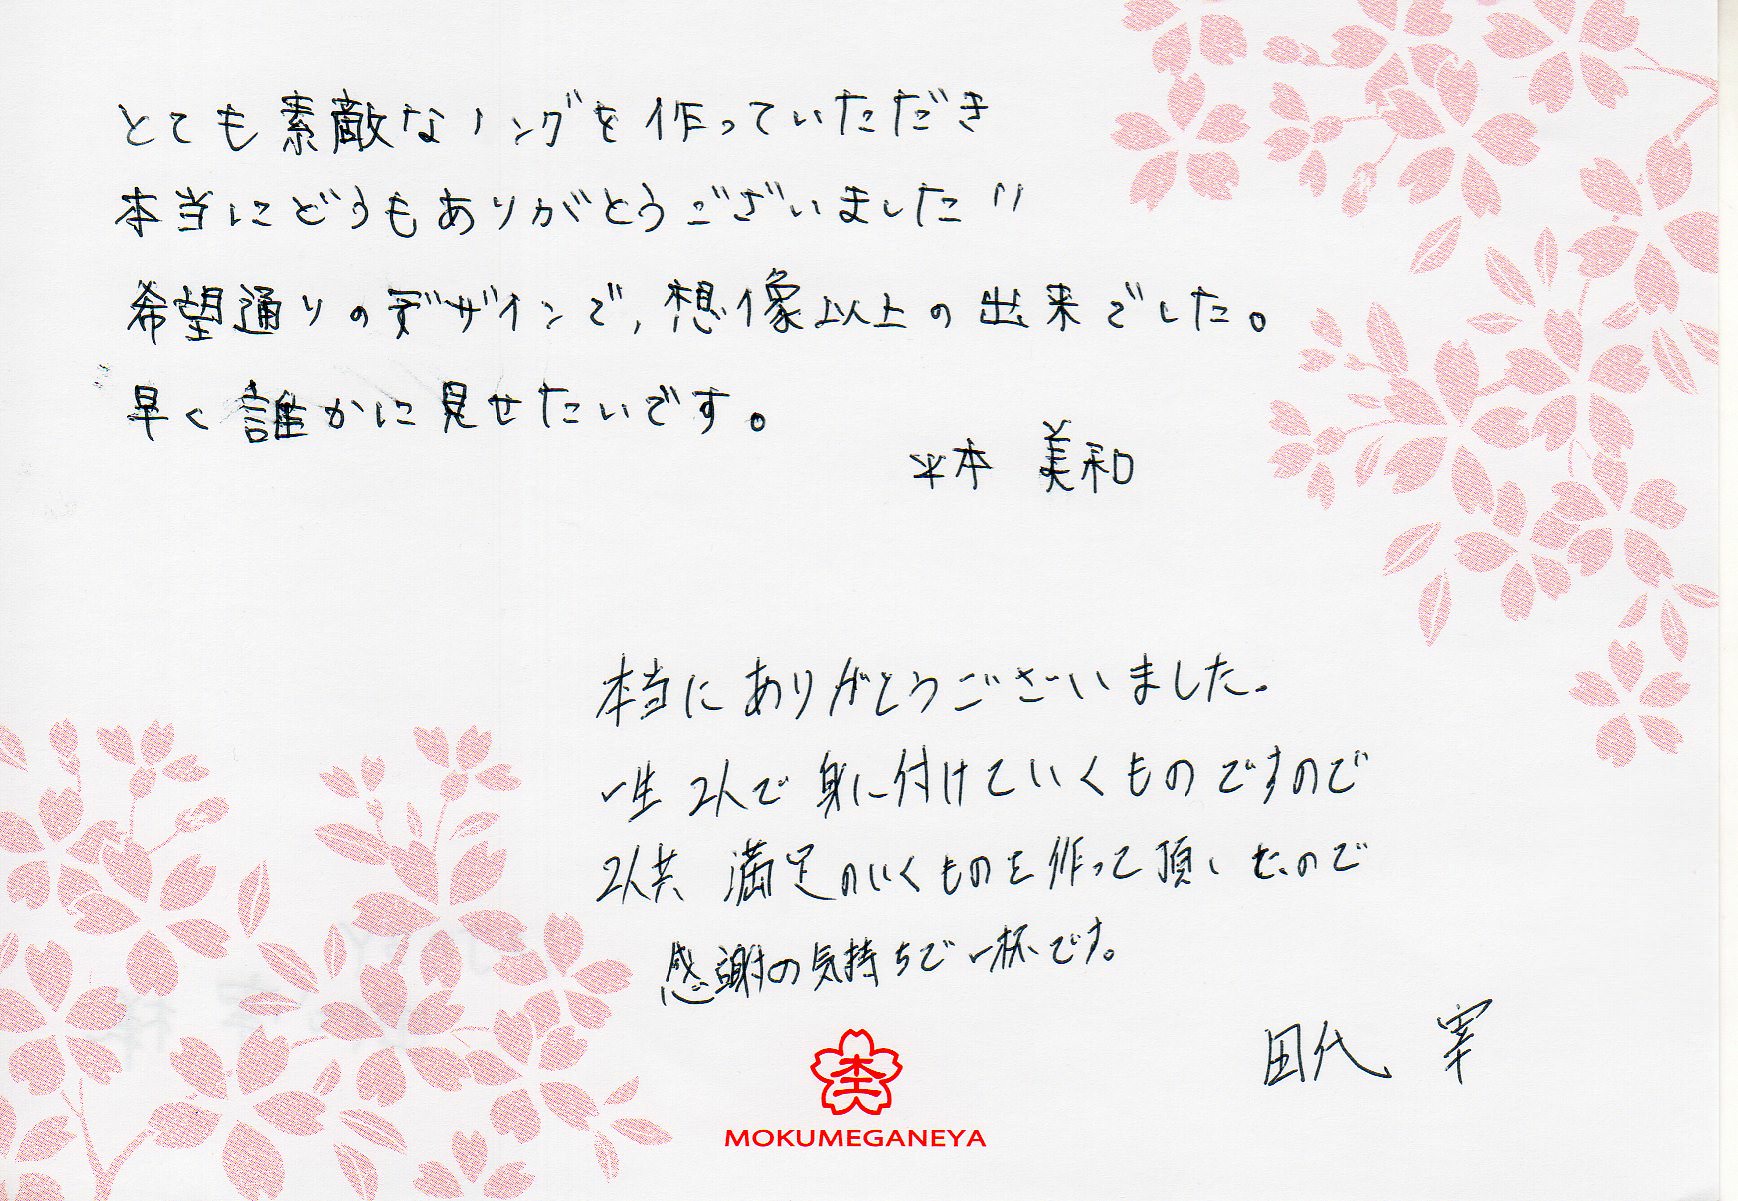 とても素敵なリングを作っていただき
本当にどうもありがとうございました!!
希望通りのデザインで、想像以上の出来でした。
早く誰かに見せたいです。
平本 美和
本当にありがとうございました。
一生2人で身に付けていくものですので
2人共 満足のいくものを作って頂いたので
感謝の気持ちで一杯です。
田代 宰
MOKUMEGANEYA